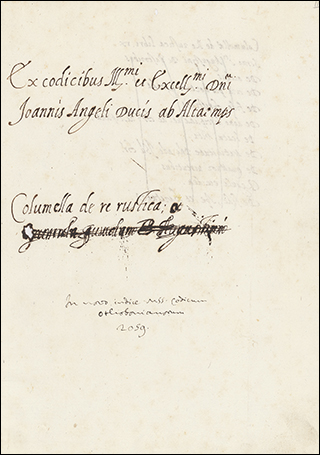 Ex codicibus Ill.mi et Excell.mi Dni
Joannis Angeli Ducis ab Altaemps
Columella de re rustica; et
In novo indice Mss. Codicum
Otthobonianorum
2059.